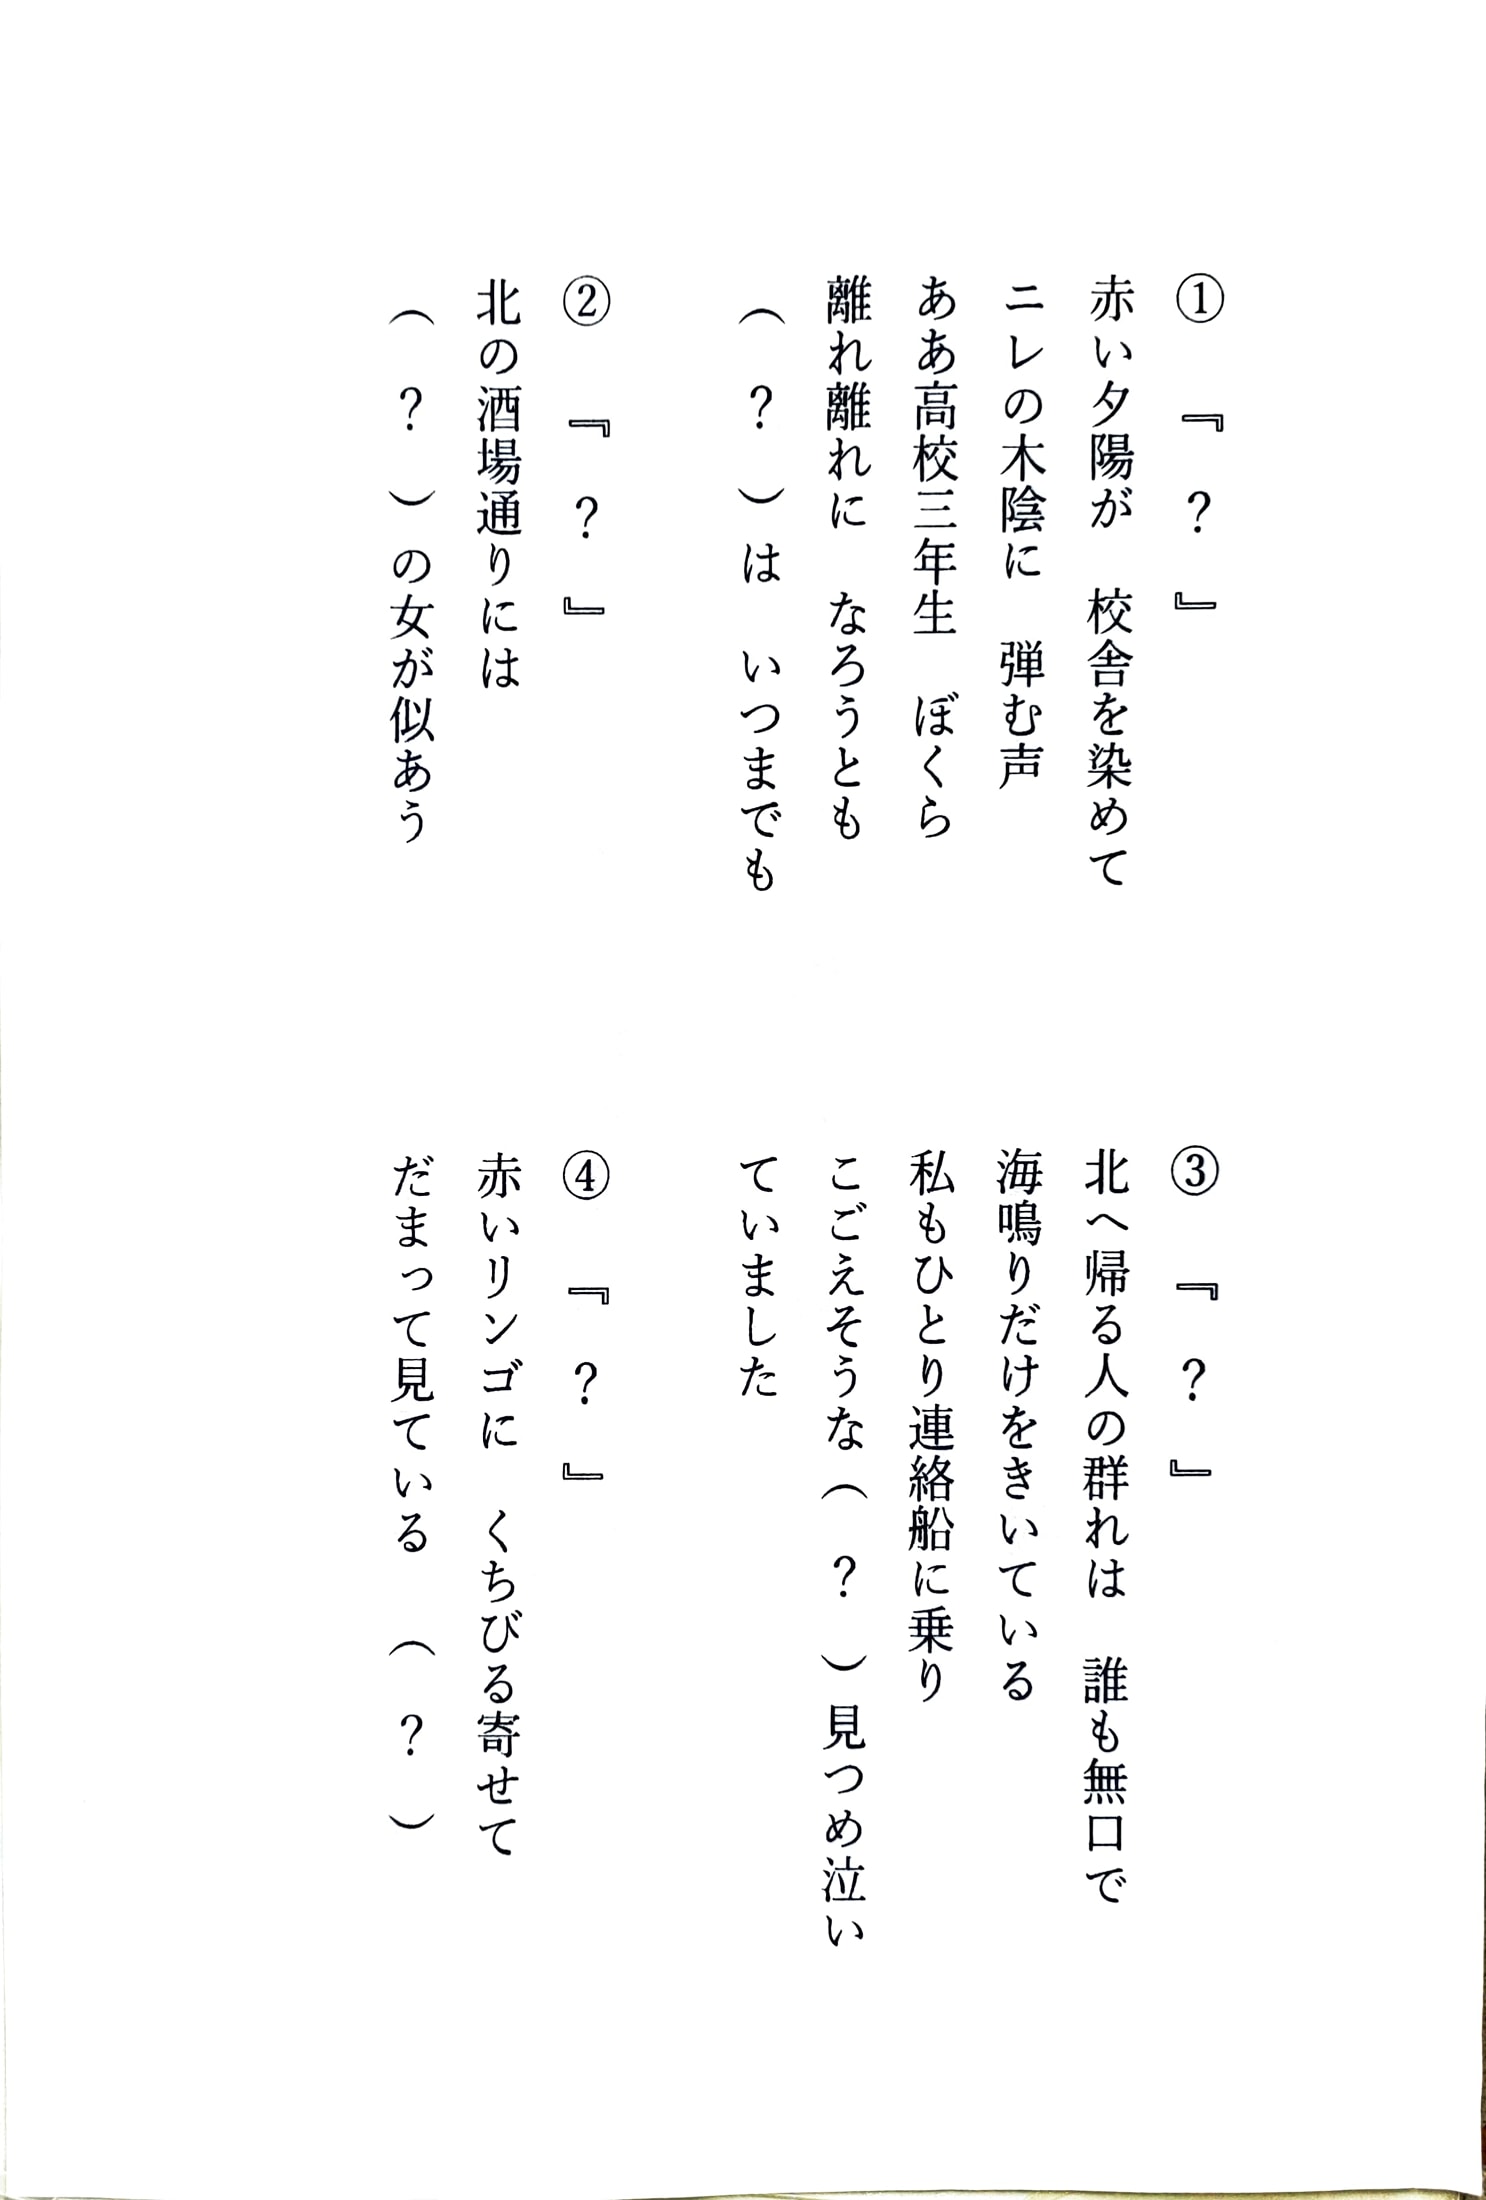 ① 『 ? 』
赤い夕陽が 校舎を染めて
ニレの木陰に 弾む声
ああ高校三年生 ぼくら
離れ離れに なろうとも
( ? )は いつまでも
② 『 ? 』
北の酒場通りには
( ? )の女が似あう
③ 『 ? 』
北へ帰る人の群れは 誰も無口で
海鳴りだけをきいている
私もひとり連絡船に乗り
こごえそうな( ? )見つめ泣い
ていました
④ 『 ? 』
赤いリンゴに くちびる寄せて
だまって見ている ( ? )